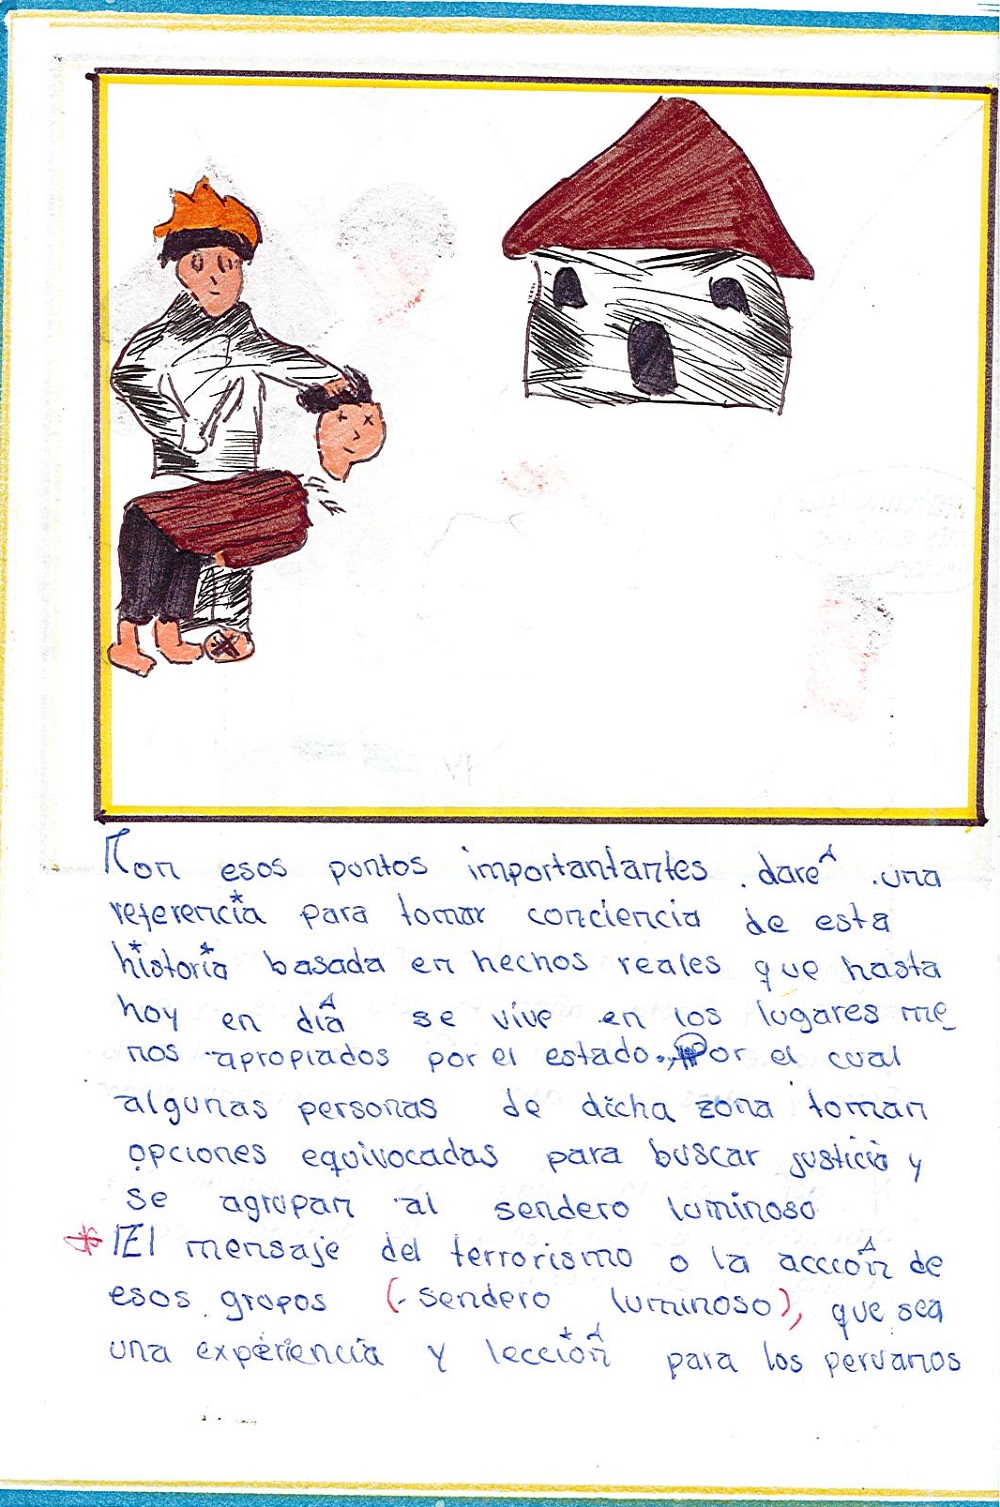 Con esos puntos importantantes . daré .una
referencia para tomar conciencia de esta
historia basada en hechos reales que hasta
hoy en día se vive en los lugares me
nos apropiados por el estado., Por el cual
algunas personas de dicha zona toman
opciones equivocadas para buscar justicia y
se agrupan al sendero luminoso
* El mensaje del terrorismo o la accción de
esos grupos (- sendero luminoso), que sea
una experiencia y lección para los peruanos